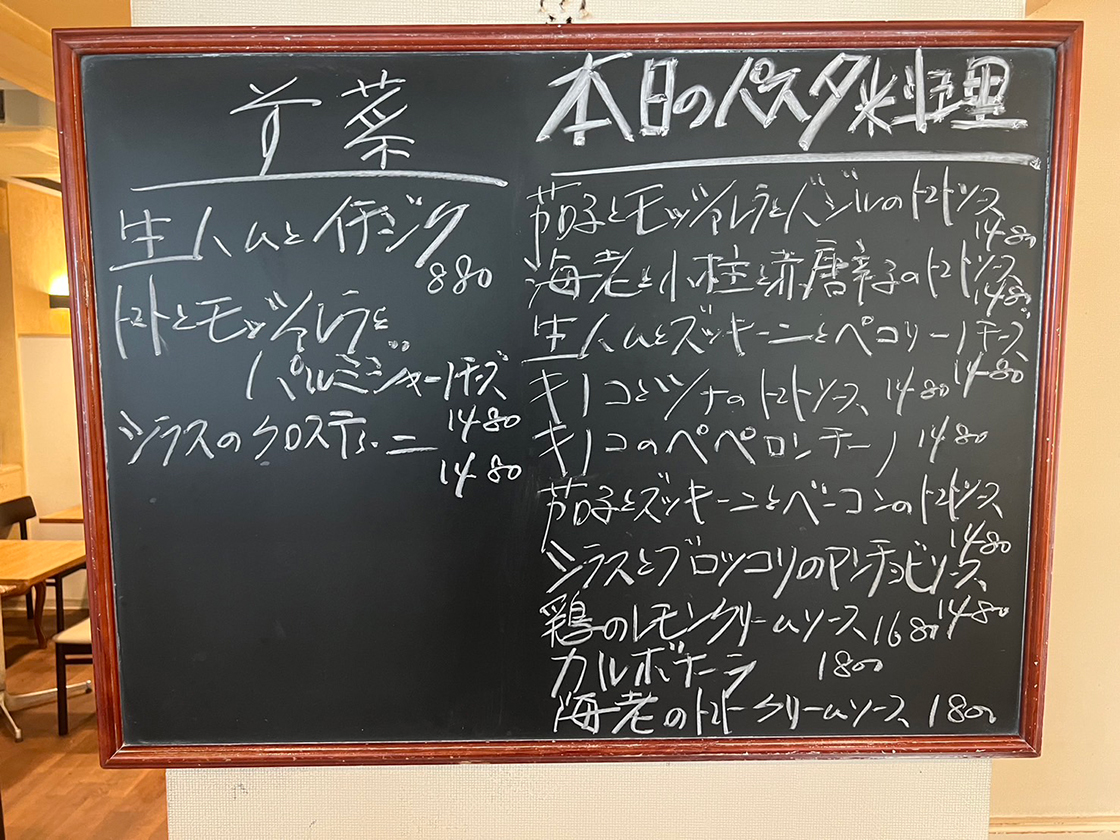 前菜
生ハムとイチジク
880
トマトとモッツァレラと
パルミジャーノチーズ
1480
シラスのクロスティーニ
1480
本日のパスタ料理
茄子とモッツァレラとバジルのトマトソース
1480
海老と小柱と赤唐辛子のトマトソース
1480
生ハムとズッキーニとペコリーノチーズ
1480
キノコとツナのトマトソース 1480
キノコのペペロンチーノ 1480
茄子とズッキーニとベーコンのトマトソース
1480
シラスとブロッコリのアンチョビソース
1480
鶏のレモンクリームソース 1680
カルボナーラ 1800
海老のトマトクリームソース 1800